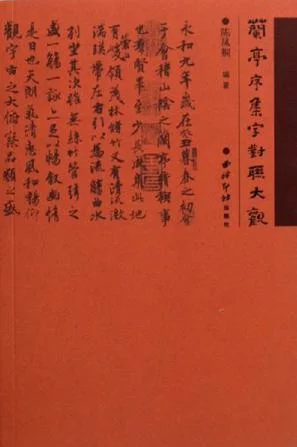 蘭亭序集字對聯大觀
陈凤桐 编著
西泠印社出版社
永和九年歲在癸丑暮春之初會
于會稽山陰之蘭亭脩稧事
也羣賢畢至少長咸集此地
有崇山峻領茂林脩竹又有清流激
湍暎帶左右引以為流觴曲水
列坐其次雖無絲竹管弦之
盛一觴一詠亦足以暢叙幽情
是日也天朗氣清惠風和暢仰
觀宇宙之大俯察品類之盛